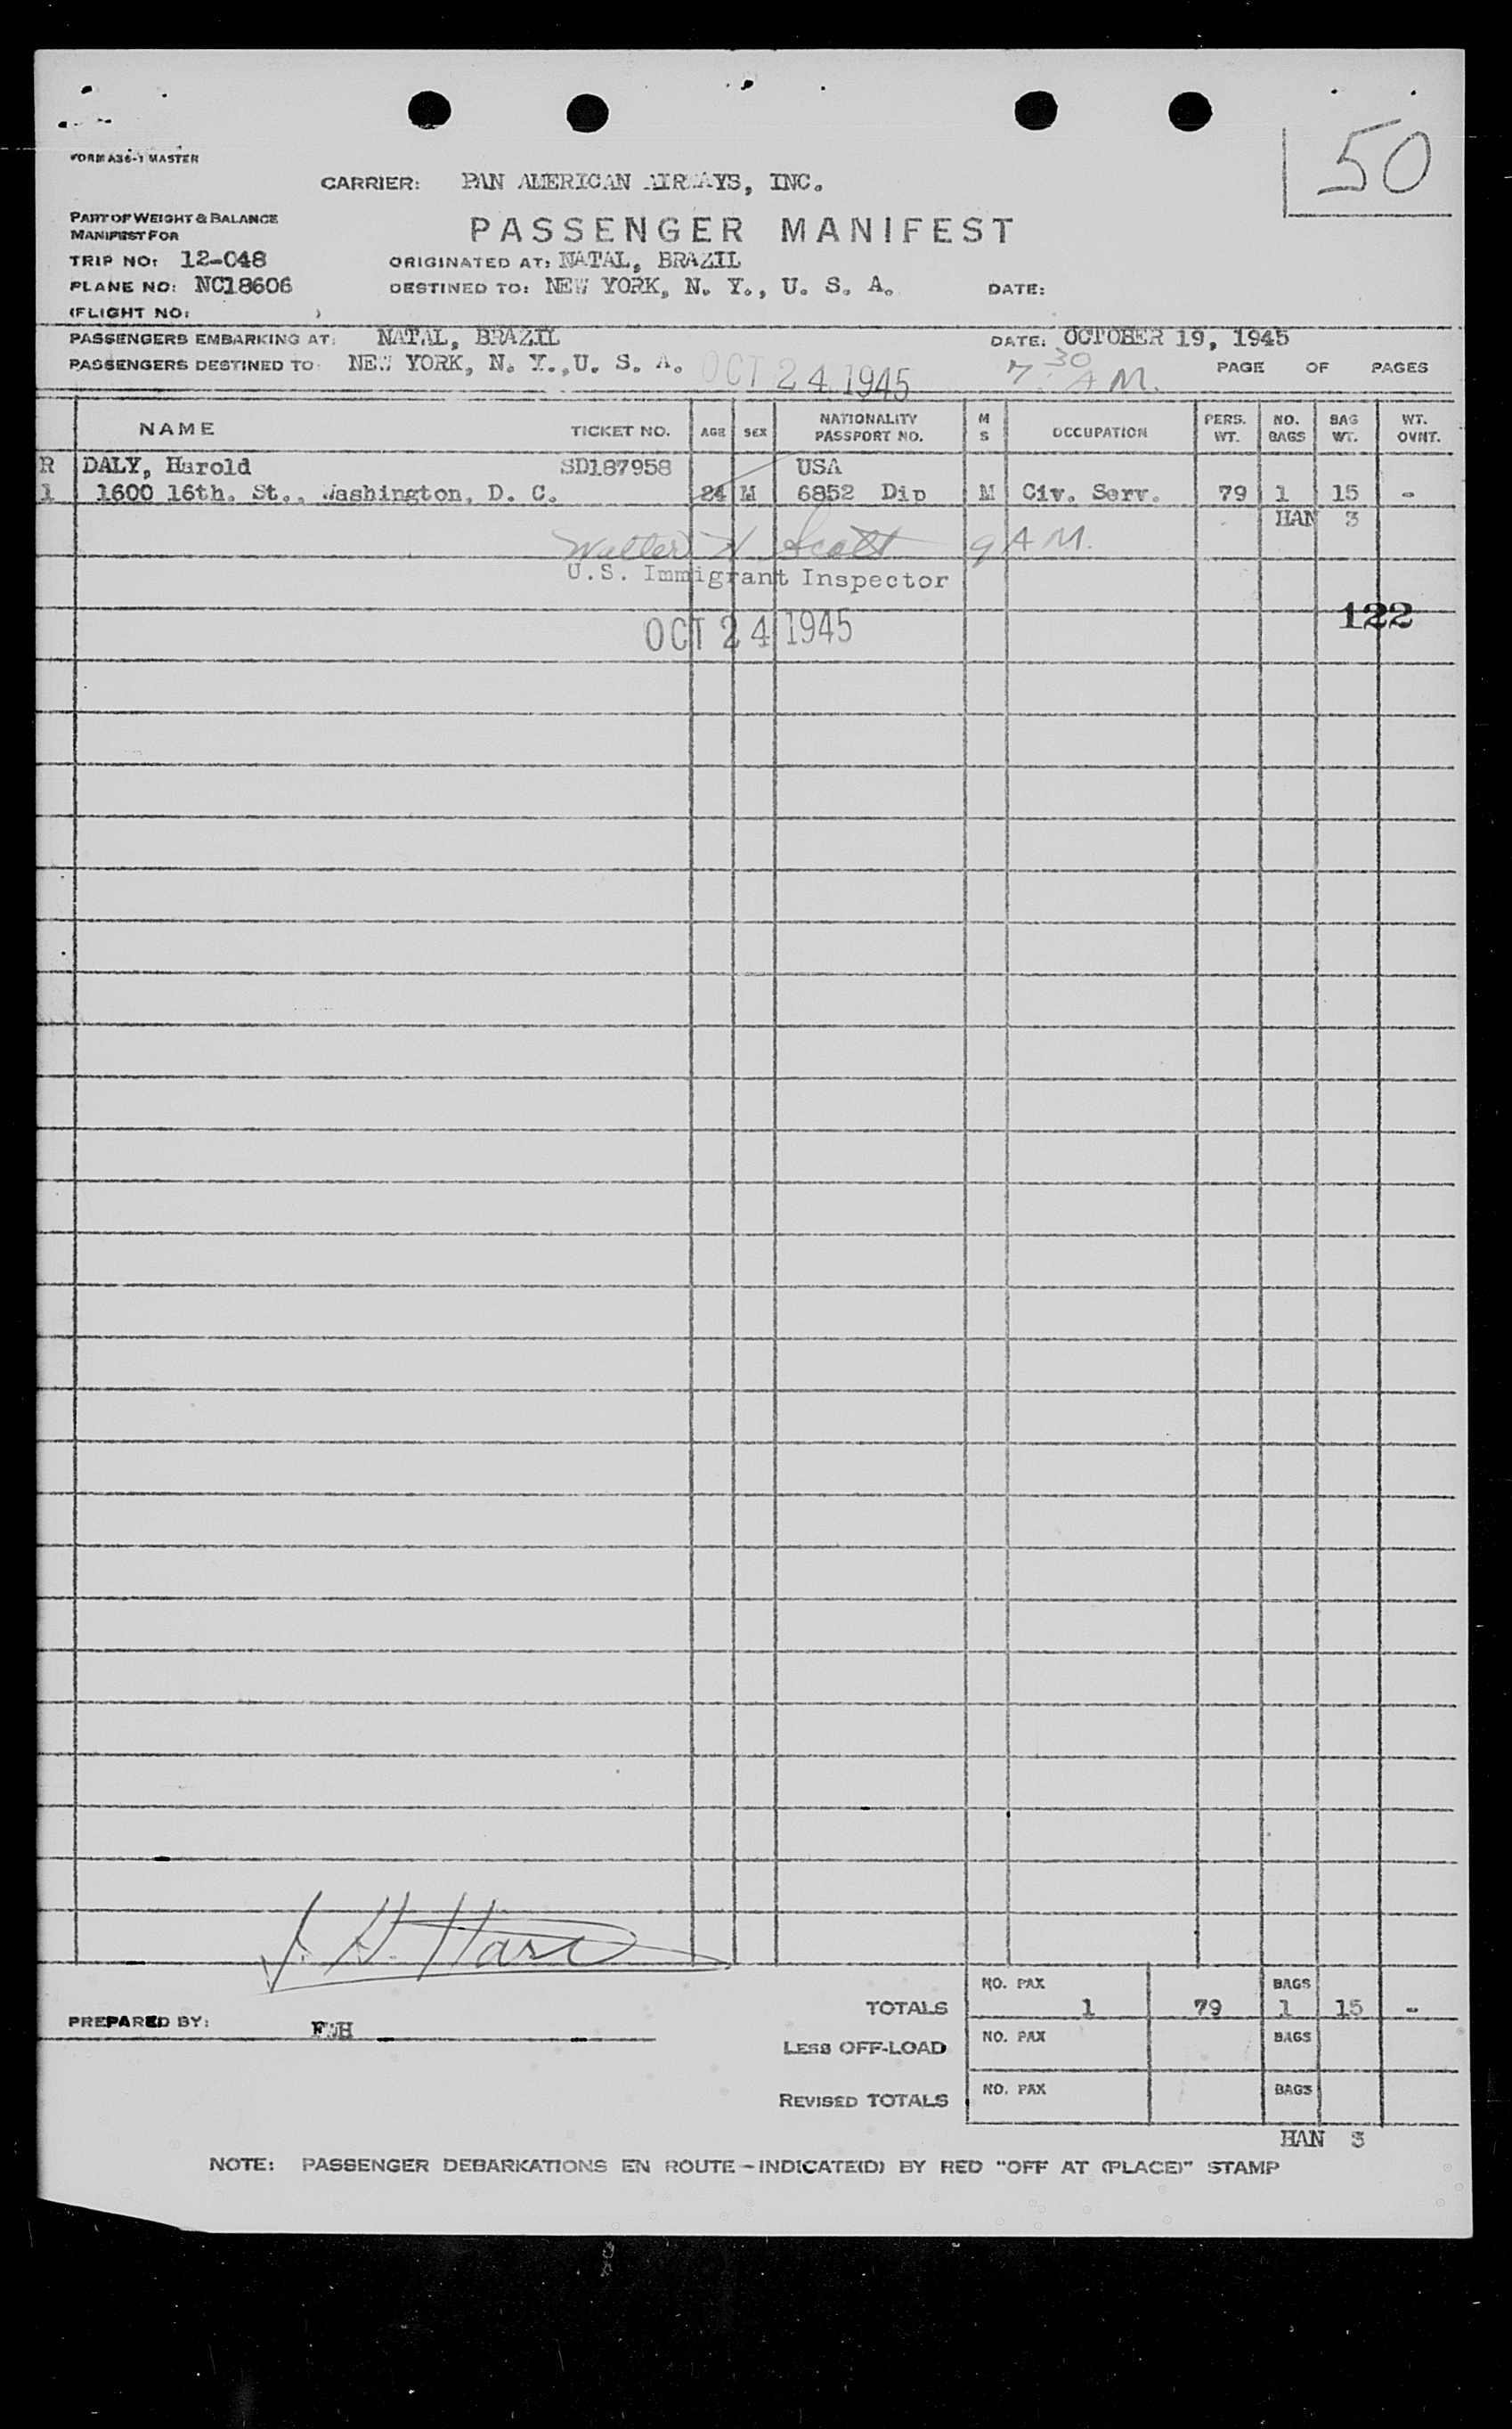 FORM A36-1 MASTER
50
CARRIER: PAN AMERICAN AIRWAYS, INC.
PART OF WEIGHT & BALANCE
MANIFEST FOR
PASSENGER MANIFEST
TRIP NO: 12-048
ORIGINATED AT: NATAL, BRAZIL
PLANE NO: NC18606
DESTINED TO: NEW YORK, N. Y., U. S. A. DATE:
(FLIGHT NO: )
PASSENGERS EMBARKING AT: NATAL, BRAZIL DATE: OCTOBER 19, 1945
PASSENGERS DESTINED TO: NEW YORK, N. Y.,U. S. A. OCT 24 1945 7:30 AM. PAGE OF PAGES
NAME TICKET NO. AGE SEX NATIONALITY PASSPORT NO. M S OCCUPATION PERS. WT. NO. BAGS BAG WT. WT. OVNT.
R DALY, Harold SD187958 USA
1 1600 16th. St., Washington, D. C. 24 M 6852 Dip M Civ. Serv. 79 1 15 -
HAN 3
Walter N Scott 9 AM.
U.S. Immigrant Inspector
122
OCT 24 1945
J. H. Hare
NO. PAX BAGS
TOTALS 1 79 1 15 -
PREPARED BY: FWH
NO. PAX BAGS
LESS OFF-LOAD
NO. PAX BAGS
REVISED TOTALS
HAN 3
NOTE: PASSENGER DEBARKATIONS EN ROUTE - INDICATE(D) BY RED "OFF AT (PLACE)" STAMP